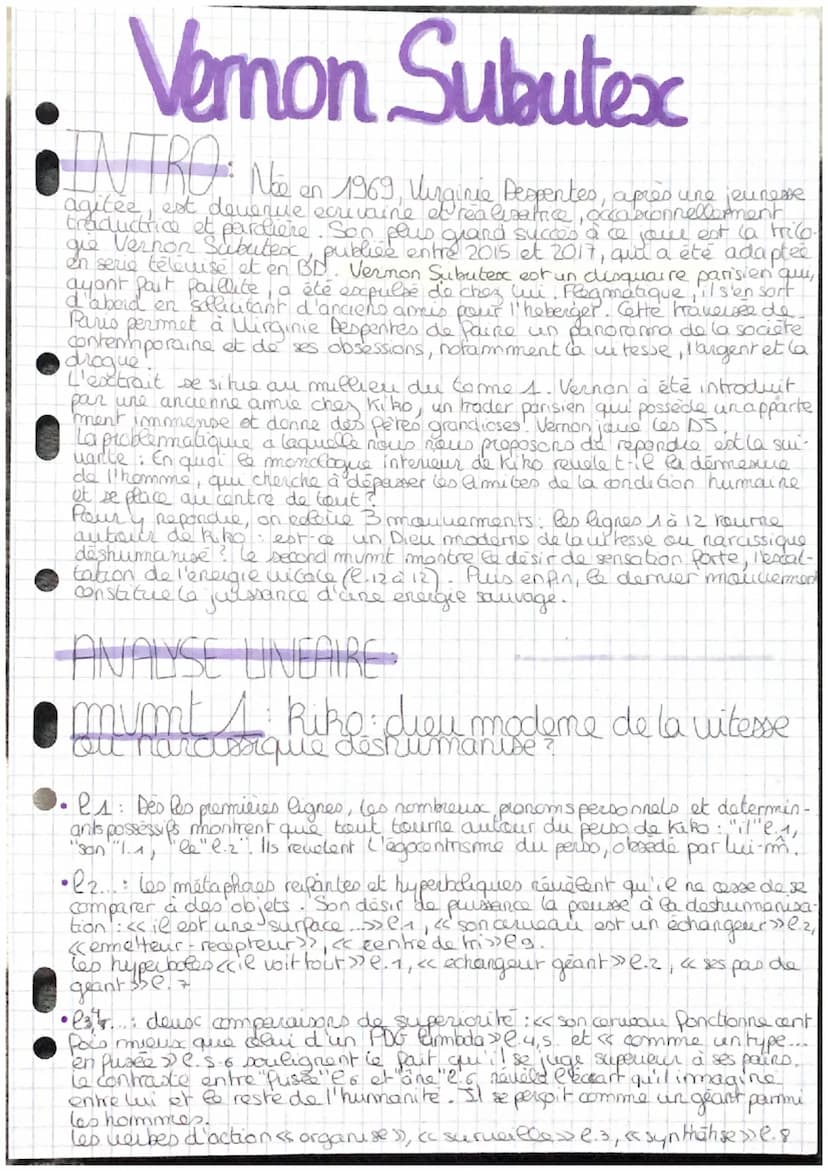 Vernon Subutex
INTRO : Née en 1969, Virginie Despentes, après une jeunesse
agitée, est devenue ecrivaine et réalisatrice, occasionnellement
traductrice et parolière. Son plus grand succès à ce jour est la trilo-
gie Vernon Subutex, publiée entre 2015 et 2017, qui a été adaptée
en serie télévisé et en BD. Vernon Subutex est un disquaire parisien qui,
ayant fait faillite, a été expulsé de chez lui. Flegmatique, il s'en sort
d'abord en sollicitant d'anciens amis pour l'heberger. Cette traversée de
Paris permet à Virginie Despentes de faire un panorama de la société
contemporaine et de ses obsessions, notamment la vitesse, l'argent et la
drogue.
L'extrait se situe au millieu du tome 1. Vernon à été introduit
par une ancienne amie chez Kiko, un trader parisien qui possède un apparte
ment immense et donne des fêtes grandioses. Vernon joue les DJ.
La problematique a laquelle nous nous proposons de repondre est la sui-
vante : En quoi le monologue interieur de Kiko revele t-il la démesure
de l'homme, qui cherche à dépasser les limites de la condition humaine
et se place au centre de tout ?
Pour y repondre, on etudie 3 mouvements : les lignes 1 à 12 tourne
autour de Kiko : est-ce un Dieu moderne de la vitesse ou narcissique
déshumanisé ? Le second mvmt montre le désir de sensation forte, l'exal-
tation de l'énergie vitale (l.12 à 17). Puis enfin, le dernier mouvement
constitue la juissance d'une energie sauvage.
ANALYSE LINEAIRE
mvmt 1 : Kiko : dieu moderne de la vitesse
ou narcissique deshumanisé ?
• l1 : Dès les premières lignes, les nombreux pronoms personnels et determin-
ants possessifs montrent que tout tourne autour du perso de Kiko : "il" l.1,
"son" l.1, "le" l.2". Ils revelent l'égocentrisme du perso, obsédé par lui-m̂.
• l2...: les métaphores refantes et hyperboliques révèlent qu'il ne cesse de se
comparer à des objets. Son désir de puissance la pousse à la deshumanisa-
tion : << il est une surface...>> l.1, << son cerveau est un échangeur>> l.2,
<<emetteur-recepteur>>, << centre de tri>> l9.
Les hyperboles <<il voit tout>> l.1, << echangeur géant>> l.2, << ses pas de
geant>> l.7
• l3,4...: deux comparaisons de superiorité : << son cerveau fonctionne cent
fois mieux que celui d'un PDG lambda>> l.4,5. et << comme un type...
en fusée>> l.5-6 soulignent le fait qu'il se juge supérieur à ses pairs.
Le contraste entre "fusée" l6 et "âne" l.6 révèle l'écart qu'il immagine
entre lui et le reste de l'humanité. Il se perçoit comme un géant parmi
les hommes.
Les verbes d'action << organise>>, << surveille>> l.3, << synthétise>> l.8